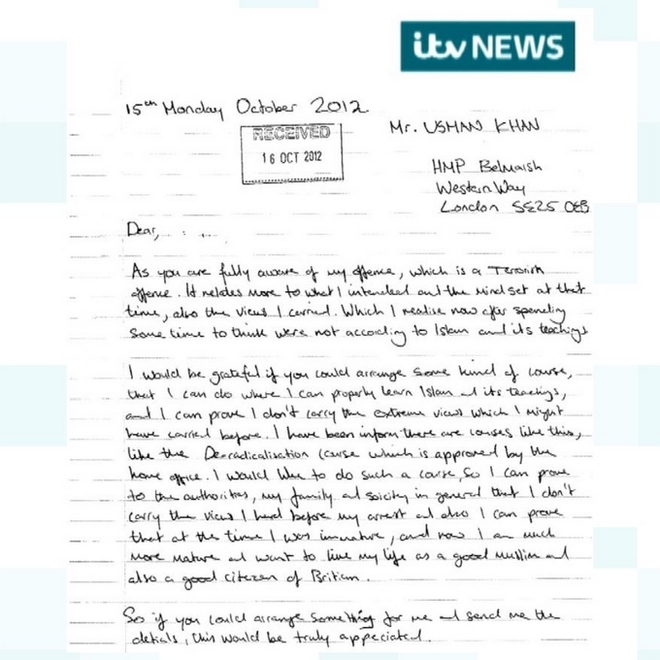 itv NEWS
15th Monday October 2012
Mr. USMAN KHAN
RECEIVED
16 OCT 2012
HMP Belmarsh
Western Way
London SE25 0EB
Dear,
As you are fully aware of my offence, which is a Terrorist
offence. It relates more to what I intended and the mind set at that
time, also the views I carried. Which I realise now after spending
some time to think were not according to Islam and its teachings
I would be grateful if you could arrange some kind of course,
that I can do where I can properly learn Islam and its teachings,
and I can prove I don't carry the extreme views which I might
have carried before. I have been inform there are courses like this,
like the Deradicalisation course which is approved by the
home office. I would like to do such a course, so I can prove
to the authorities, my family and soicity in general that I don't
carry the views I had before my arrest and also I can prove
that at the time I was immature, and now I am much
more mature and want to live my life as a good muslim and
also a good citizen of Britian.
So if you could arrange something for me and send me the
details, this would be truly appeciated.